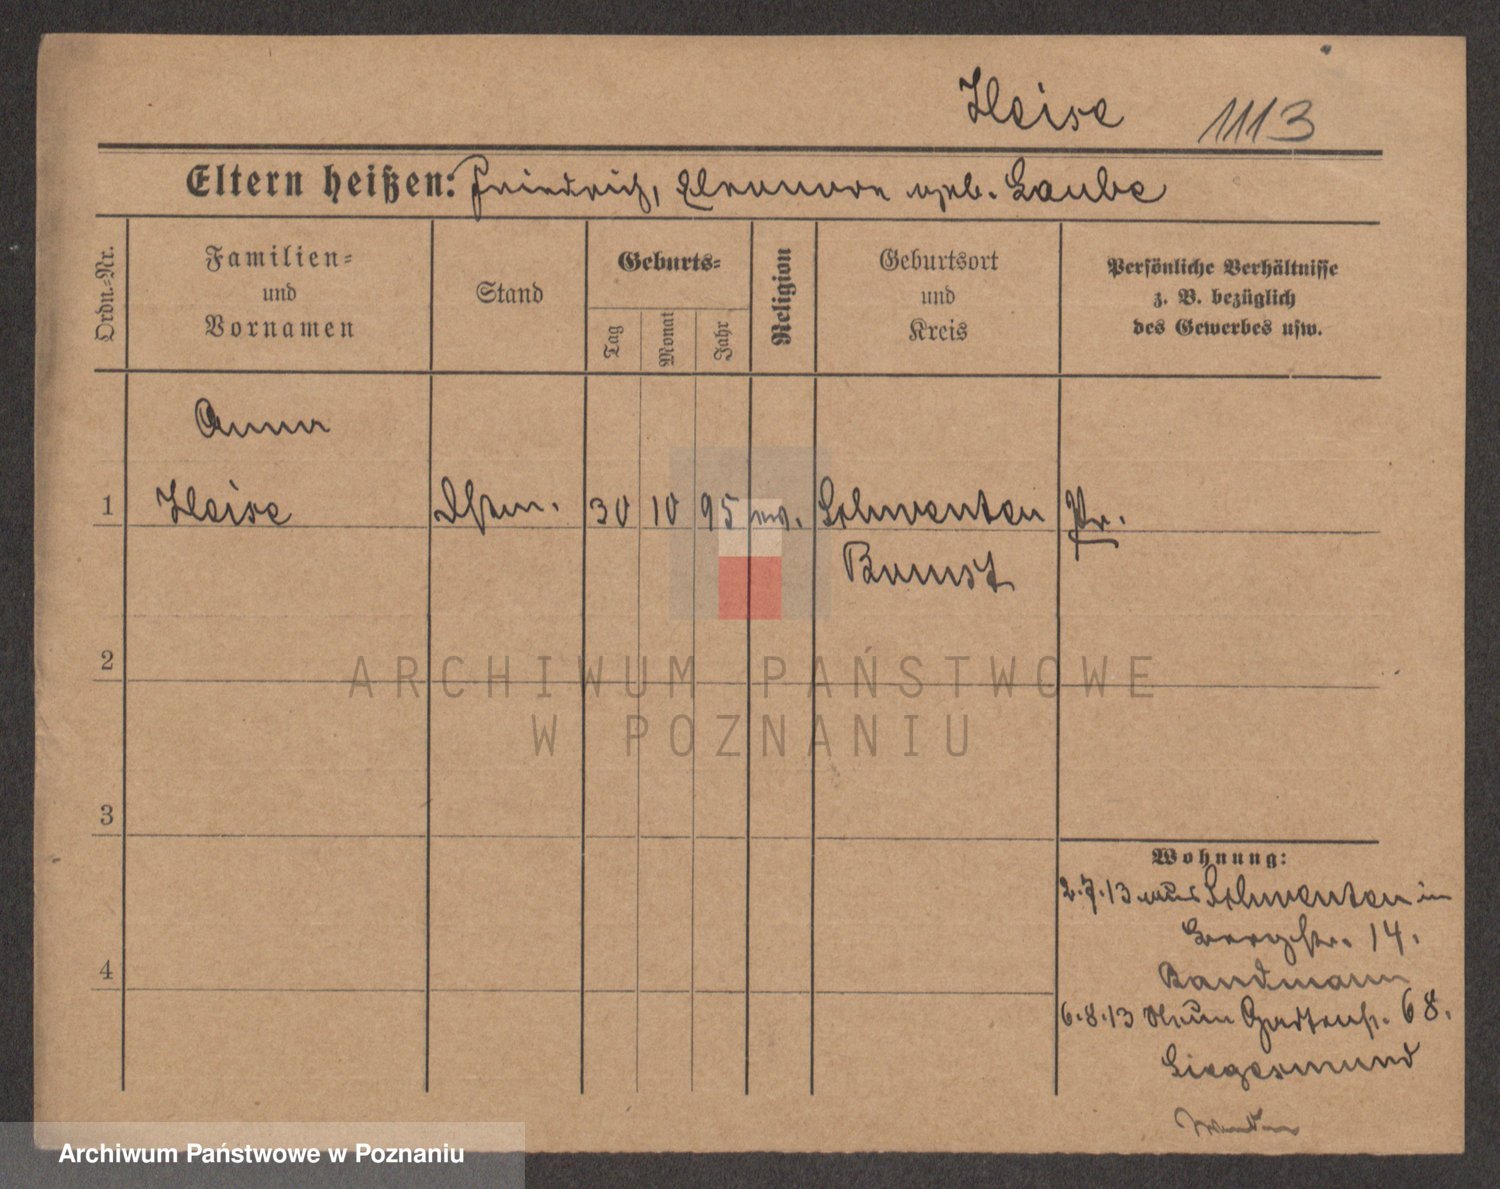 Heise 1113
Eltern heißen: Friedrich, Eleonore geb. Laube
Ordn.-Nr.
Familien-
und
Vornamen
Stand
Geburts-
Tag
Monat
Jahr
Religion
Geburtsort
und
Kreis
Persönliche Verhältnisse
z. B. bezüglich
des Gewerbes usw.
Anna
1 Heise 30 10 95 ev. Schwenten Pr.
Bomst
2
ARCHIWUM PAŃSTWOWE
W POZNANIU
3
4
Wohnung:
2.7.13 aus Schwenten in
Bergstr. 14.
Bandmann
6.8.13 Neue Gartenstr. 68.
Siegesmund
Archiwum Państwowe w Poznaniu